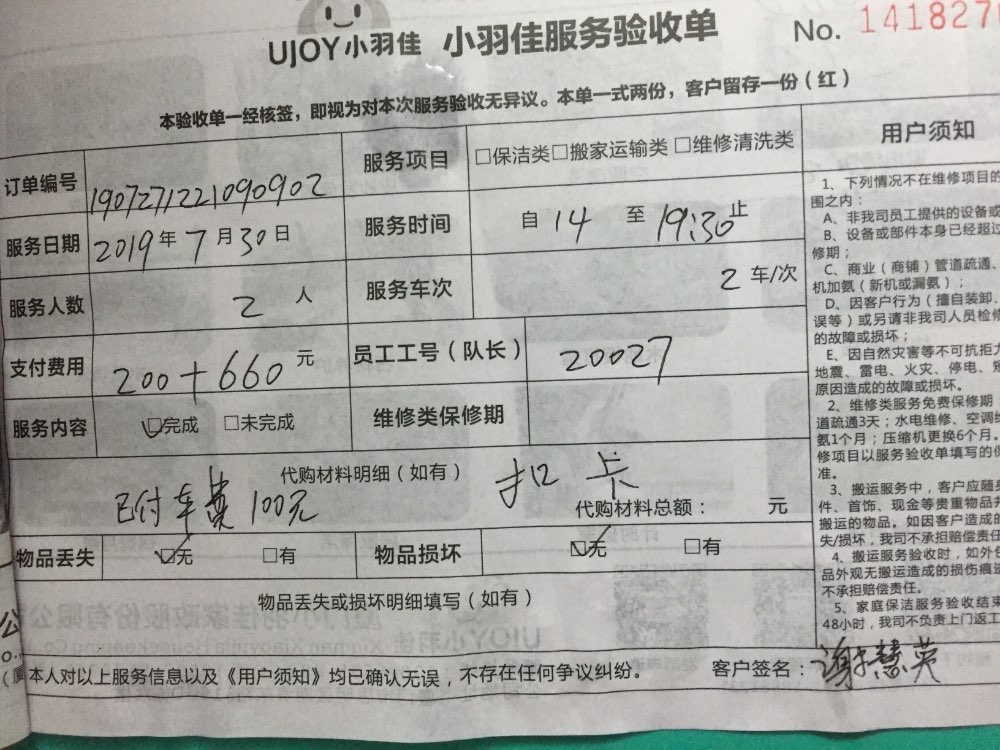 UJOY小羽佳 小羽佳服务验收单 No. 141827
本验收单一经核签，即视为对本次服务验收无异议。本单一式两份，客户留存一份（红）
订单编号 1907271221090902 服务项目 □保洁类□搬家运输类 □维修清洗类
服务日期 2019年7月30日 服务时间 自 14 至 19:30 止
服务人数 2 人 服务车次 2 车/次
支付费用 200+660 元 员工工号（队长） 20027
服务内容 ☑完成 □未完成 维修类保修期
代购材料明细（如有）
已付车费 100元 扣卡
代购材料总额： 元
物品丢失 ☑无 □有 物品损坏 ☑无 □有
物品丢失或损坏明细填写（如有）
本人对以上服务信息以及《用户须知》均已确认无误，不存在任何争议纠纷。 客户签名：谢慧英
用户须知
1、下列情况不在维修项目的
围之内：
A、非我司员工提供的设备或
B、设备或部件本身已经超过
修期；
C、商业（商铺）管道疏通、
机加氨（新机或漏氨）；
D、因客户行为（擅自装卸、
误等）或另请非我司人员检修
的故障或损坏；
E、因自然灾害等不可抗拒力
地震、雷电、火灾、停电、
原因造成的故障或损坏。
2、维修类服务免费保修期
道疏通3天；水电维修、空调
氨1个月；压缩机更换6个月，
修项目以服务验收单填写的保
准。
3、搬运服务中，客户应随身
件、首饰、现金等贵重物品并
搬运的物品。如因客户造成的
失/损坏，我司不承担赔偿责任
4、搬运服务验收时，如外包
品外观无搬运造成的损伤痕迹
不承担赔偿责任。
5、家庭保洁服务验收结束
48小时，我司不负责上门返工